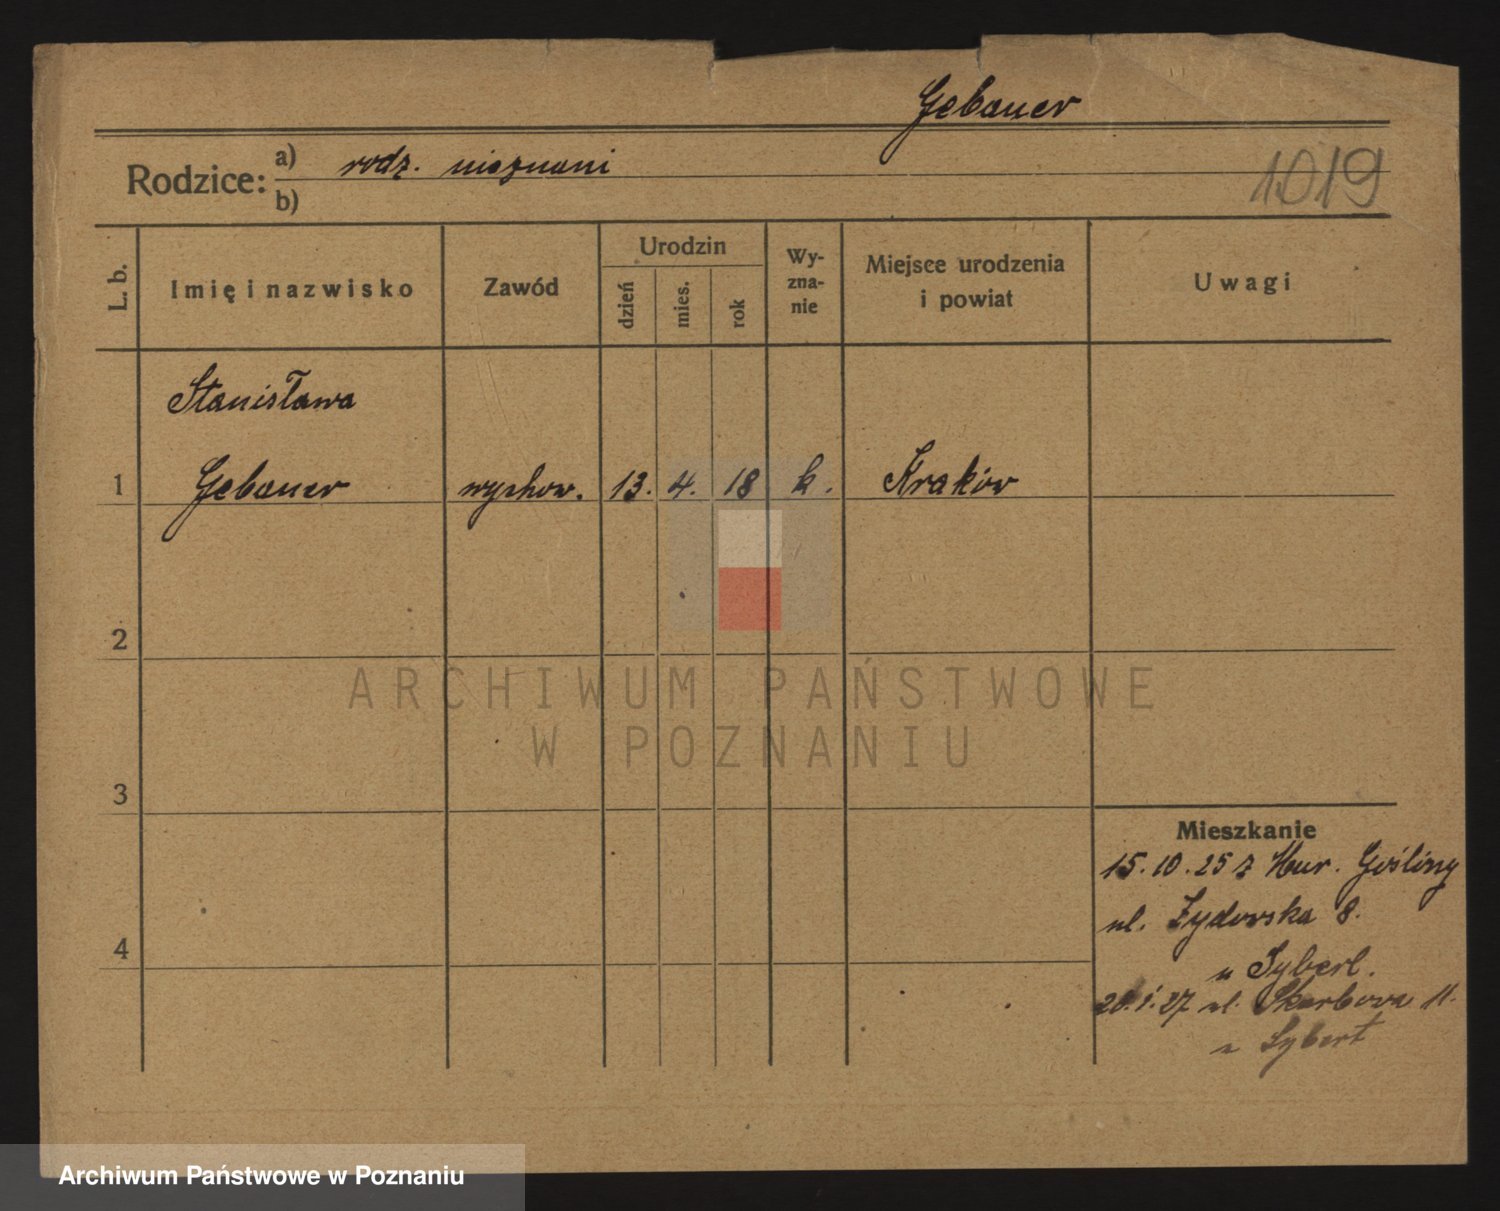 Gebauer
Rodzice: a) rodz. nieznani
b)
1019
L. b.
Imię i nazwisko
Zawód
Urodzin
dzień
mies.
rok
Wy-
zna-
nie
Miejsce urodzenia
i powiat
Uwagi
Stanisława
1 Gebauer wychow. 13. 4. 18 k. Kraków
2
ARCHIWUM PAŃSTWOWE
W POZNANIU
3
Mieszkanie
15.10.25 z Mur. Gośliny
ul. Żydowska 8.
4
u Syberl.
20.1.27 ul. Skarbowa 11.
u Sybert
Archiwum Państwowe w Poznaniu